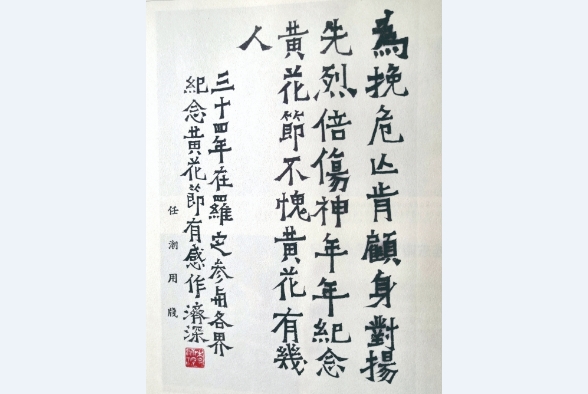 為挽危亾肯顧身對揚
先烈倍傷神年年紀念
黄花節不愧黄花有幾
人
三十四年在羅定参与各界
紀念黄花節有感作濟深
任潮用牋